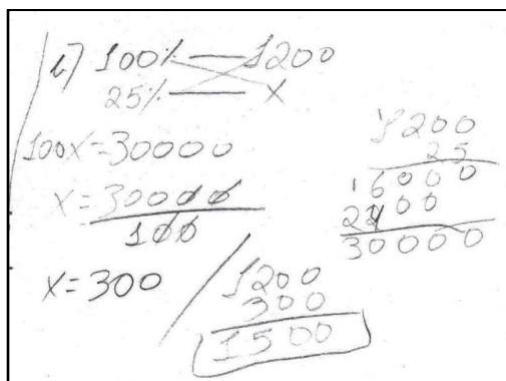 b) 100% — 1200
25% — X
100X = 30000
X = 30000
100
X = 300
1200
25
6000
2400
30000
1200
300
1500